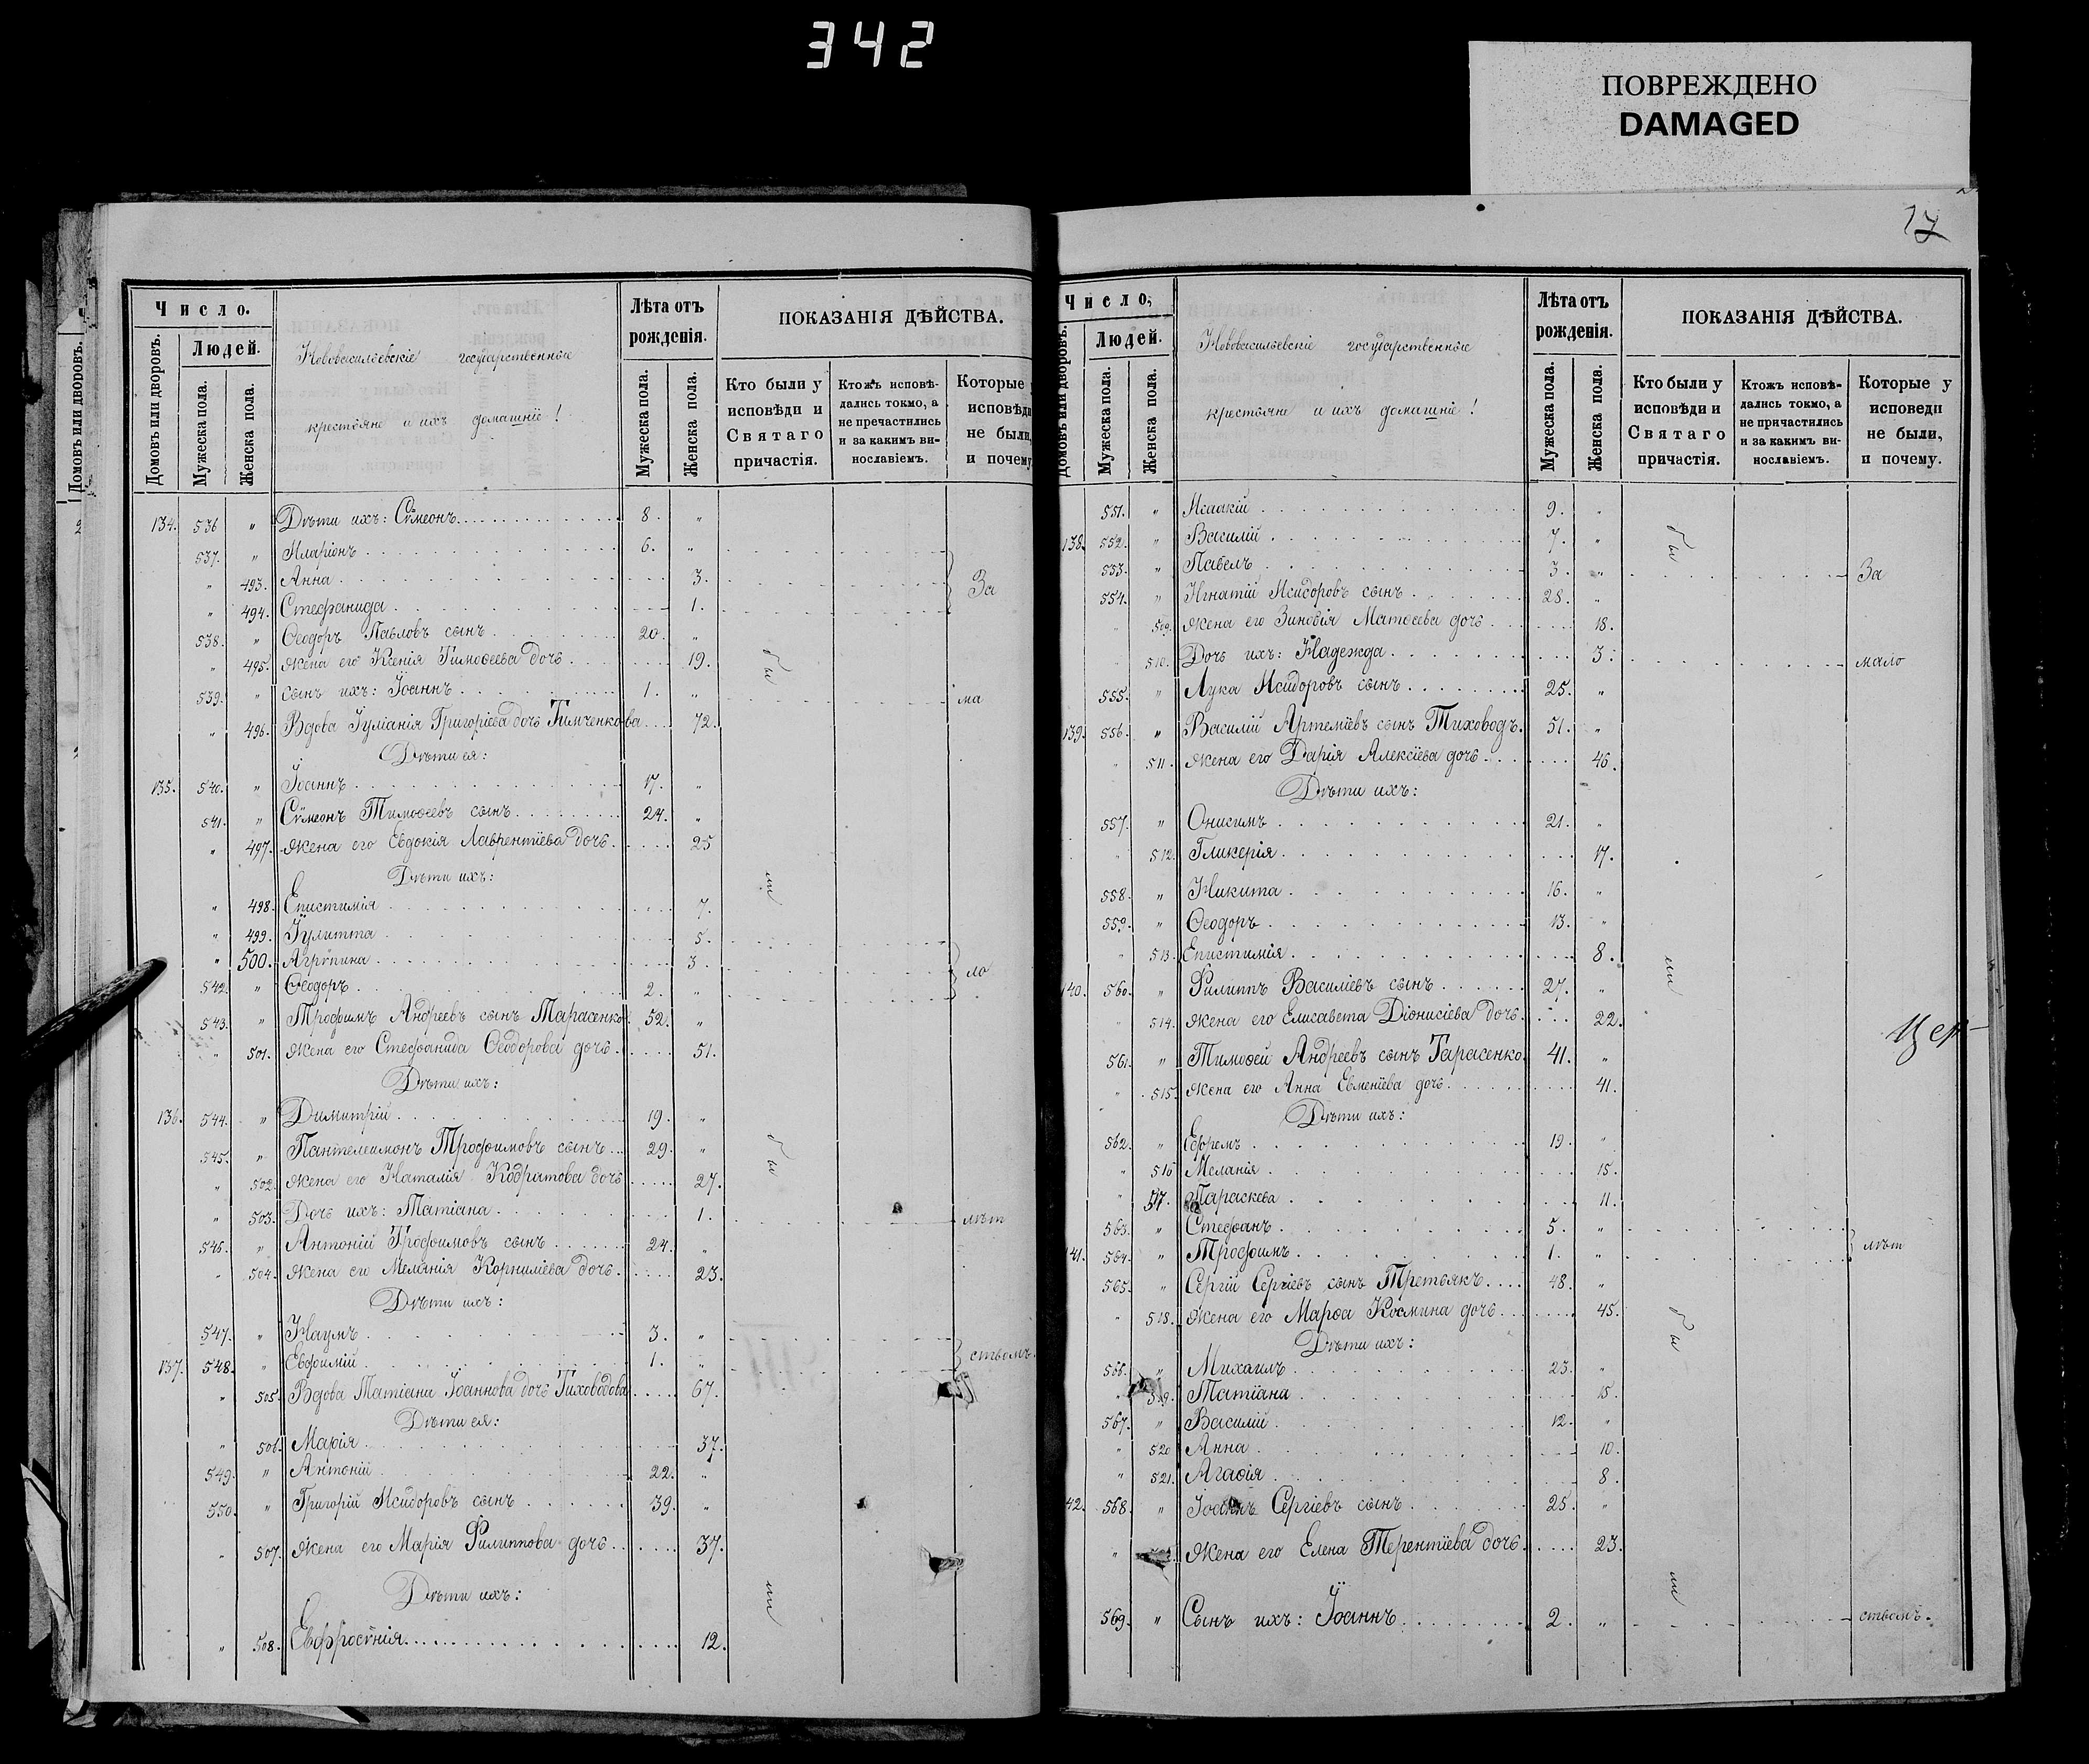 342
ПОВРЕЖДЕНО
DAMAGED
17
Домовъ или дворовъ.
Число.
Домовъ или дворовъ.
Людей.
Мужеска пола.
Женска пола.
Нововасильевскіе государственные
крестьяне и ихъ домашніе!
Лѣта отъ рожденія.
Мужеска пола.
Женска пола.
ПОКАЗАНІЯ ДѢЙСТВА.
Кто были у исповѣди и Святаго причастія.
Ктожъ исповѣ-дались токмо, а не пречастились и за какимъ ви-нославіемъ.
Которые исповѣди не были, и почему
134. 536 " Дѣти ихъ: Сѷмеонъ 8. "
537. " Иларіонъ 6. "
" 493. Анна 3. За
" 494. Стефанида 1.
538. " Ѳеодоръ Павловъ сынъ 20. "
" 495. Жена его Ксенія Тимоѳеева дочь 19. бы
539. " Сынъ ихъ: Іоаннъ 1. " ма
" 496. Вдова Іуліанія Григоріева дочь Тимченкова 72.
Дѣти ея:
135. 540. " Іоаннъ 17. "
541. " Сѷмеонъ Тимоѳеевъ сынъ 24. "
" 497. Жена его Евдокія Лаврентіева дочь 25
Дѣти ихъ:
" 498. Епистимія 7. ли
" 499. Іулитта 5.
" 500. Агрѷпина 3. ло
542. " Ѳеодоръ 2. "
543. " Трофимъ Андреевъ сынъ Тарасенко 52. "
" 501. Жена его Стефанида Ѳеодорова дочь 51.
Дѣти ихъ:
136. 544. " Димитрій 19. "
545. " Пантелеимонъ Трофимовъ сынъ 29. " бы
" 502. Жена его Наталія Кодратова дочь 27.
" 503. Дочь ихъ: Татіана 1. лѣт
546. " Антоній Трофимовъ сынъ 24. "
" 504. Жена его Меланія Корниліева дочь 23.
Дѣти ихъ:
547. " Наумъ 3. "
137. 548. " Евфимій 1. " ствомъ.
" 505. Вдова Татіана Іоаннова дочь Тиховодова 67.
Дѣти ея:
" 506. Марія 37.
549. " Антоній 22. "
550. " Григорій Исидоровъ сынъ 39. "
" 507. Жена его Марія Филиппова дочь 37.
Дѣти ихъ: ли
" 508. Евфросѷнія 12.
Число,
Домовъ или дворовъ.
Людей.
Мужеска пола.
Женска пола.
Нововасильевскіе государственные
крестьяне и ихъ домашніе!
Лѣта отъ рожденія.
Мужеска пола.
Женска пола.
ПОКАЗАНІЯ ДѢЙСТВА.
Кто были у исповѣди и Святаго причастія.
Ктожъ исповѣ-дались токмо, а не причастились и за какимъ ви-нославіемъ.
Которые у исповеди не были, и почему.
551. " Исаакій 9. "
138. 552. " Василій 7. " бы
553. " Павелъ 3. " За
554. " Игнатій Исидоровъ сынъ 28. "
" 509. Жена его Зиновія Матѳеева дочь 18.
510. Дочь ихъ: Надежда 3. мало
555. " Лука Исидоровъ сынъ 25. "
139. 556. " Василій Артеміевъ сынъ Тиховодъ. 51. "
" 511. Жена его Дарія Алексіева дочь 46.
Дѣти ихъ:
557. " Онисимъ 21. "
" 512. Гликерія 17.
558. " Никита 16. "
559. " Ѳеодоръ 13. "
" 513. Епистимія 8. ли
140. 560. " Филиппъ Василіевъ сынъ 27. "
" 514. Жена его Елисавета Діонисіева дочь 22.
Цер-
561. " Тимоѳей Андреевъ сынъ Тарасенко. 41. "
" 515. Жена его Анна Евменіева дочь 41.
Дѣти ихъ:
562. " Ефремъ 19. "
" 516 Меланія 15.
" 517. Параскева 11.
563. " Стефанъ 5. "
141. 564. " Трофимъ 1. " лѣт
565. " Сергій Сергіевъ сынъ Третьякъ 48. "
" 518. Жена его Марѳа Космина дочь 45. бы
Дѣти ихъ:
566. " Михаилъ 23. "
519. Татіана 15.
567. " Василій 12. "
" 520 Анна 10.
" 521. Агаѳія 8.
142. 568. " Іоаннъ Сергіевъ сынъ 25. "
" Жена его Елена Терентіева дочь 23.
ли
569. " Сынъ ихъ: Іоаннъ 2. " ствомъ.